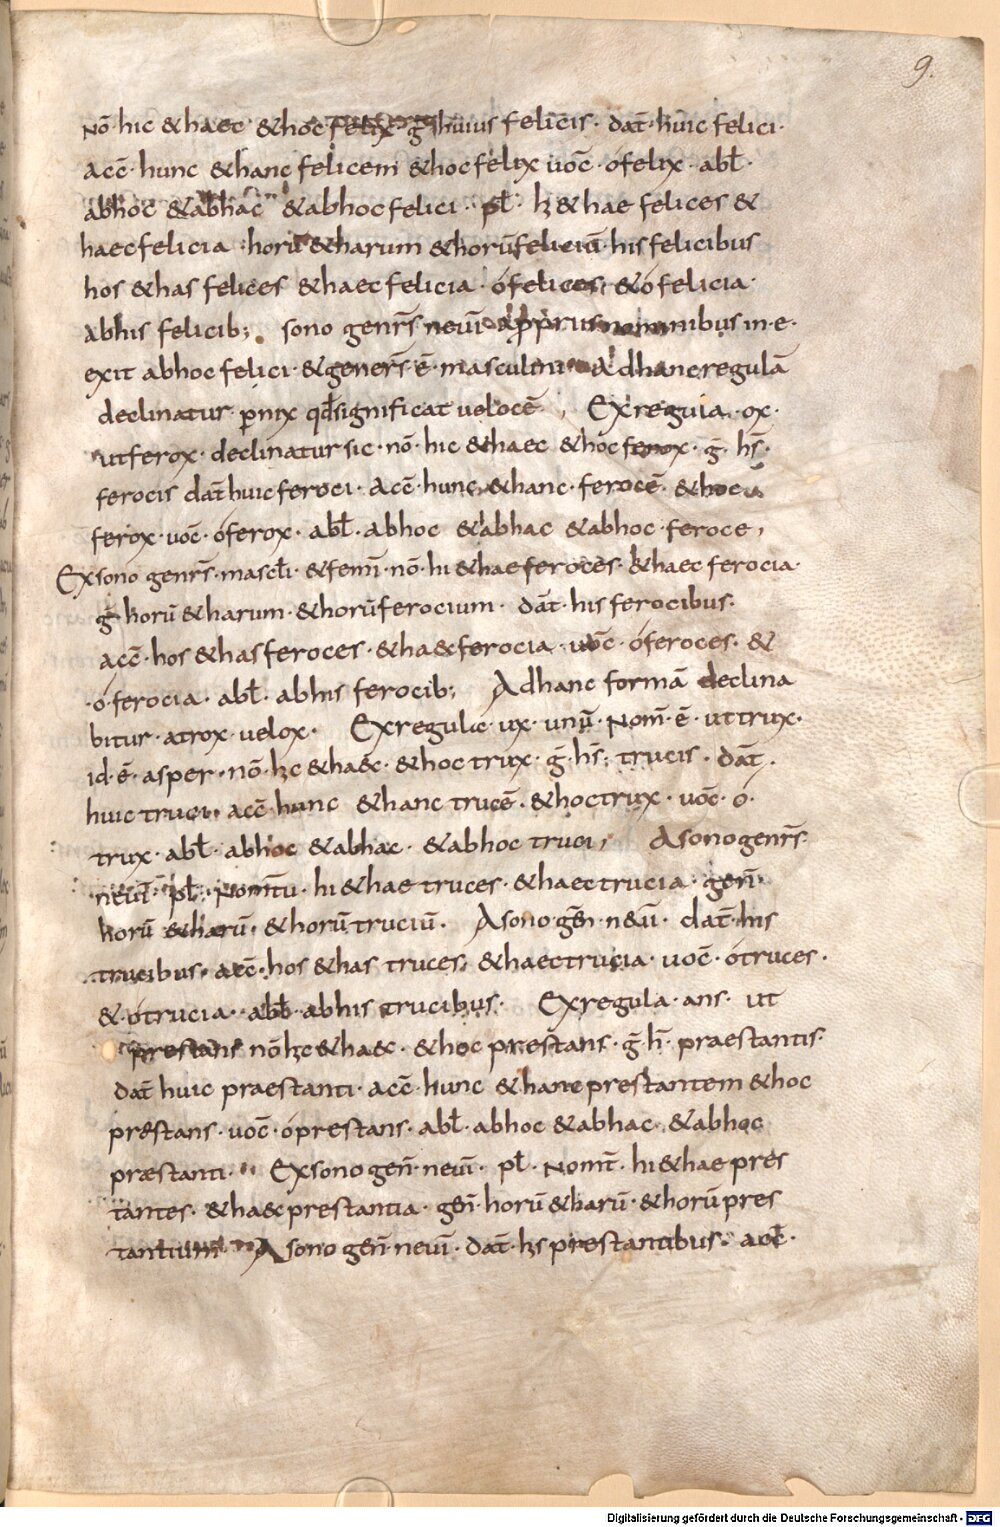 9.
Nō · hic & haec & hoc felix ḡ huius felicis · dat̄ · huic felici ·
Acc̄ · hunc & hanc felicem & hoc felix uoc̄ · ó felix · abł ·
abhoc & abhac & abhoc felici · pł · hi & hae felices &
haec felicia · horū & harum & horū feliciū · his felicibus
hos & has felices & haec felicia · ó felices · & ó felicia ·
Abhis felicib; sono gener̄s neut̄ nominibus in · e ·
exit abhoc felici · & gener̄s · ē · masculini Adhanc regulā
declinatur · pnix qđ significat uelocē , Ex regula · ox ·
ut ferox · declinatur sic · nō · hic & haec & hoc ferox · ḡ · hs̄ ·
ferocis dat̄ huic feroci · Acc̄ · hunc & hanc · ferocē · & hoc
ferox · uoc̄ · ó ferox · abł · abhoc & abhac & abhoc · feroce ,
Ex sono gener̄s · mascłi · & femī · nō · hi & hae feroces · & haec ferocia ·
ḡ · horū & harum · & horū ferocium · dat̄ · his ferocibus ·
acc̄ · hos & has feroces · & haec ferocia · uoc̄ · ó feroces · &
· ó · ferocia · abł · abhis ferocib; Adhanc formā declina
bitur · atrox · uelox · Ex regula · ux · unū · Nom̄ · ē · ut trux ·
id · ē · asper · nō · hic & haec · & hoc trux · ḡ · hs̄ · trucis · dat̄ ·
huic truci · acc̄ · hunc & hanc trucē · & hoc trux · uoc̄ · ó ·
trux · abł · abhoc & abhac · & abhoc truci , A sono gener̄s ·
neut̄ · pł · Nomt̄u · hi & hae truces · & haec trucia · gen̄ ·
horū & harū · & horū truciū · A sono gen̄ · neut̄ · dat̄ · his
trucibus · acc̄ · hos & has truces · & haec trucia · uoc̄ · ó truces ·
& · ó trucia · abł · abhis trucibus · Ex regula · ans · ut
prestans nō hic & haec · & hoc prestans · ḡ · h̄ · praestantis ·
dat̄ huic praestanti · acc̄ · hunc & hanc prestantem & hoc
pręstans · uoc̄ · ó prestans · abł · abhoc & abhac · & abhoc
præstanti · Ex sono gen̄ · neut̄ · pł · Nomt̄ · hi & hae pres
tantes · & haec prestantia · gen̄ · horū & harū · & horū pres
tantium A sono gen̄ · neut̄ · dat̄ · his prestantibus · acc̄ ·
Digitalisierung gefördert durch die Deutsche Forschungsgemeinschaft - DFG